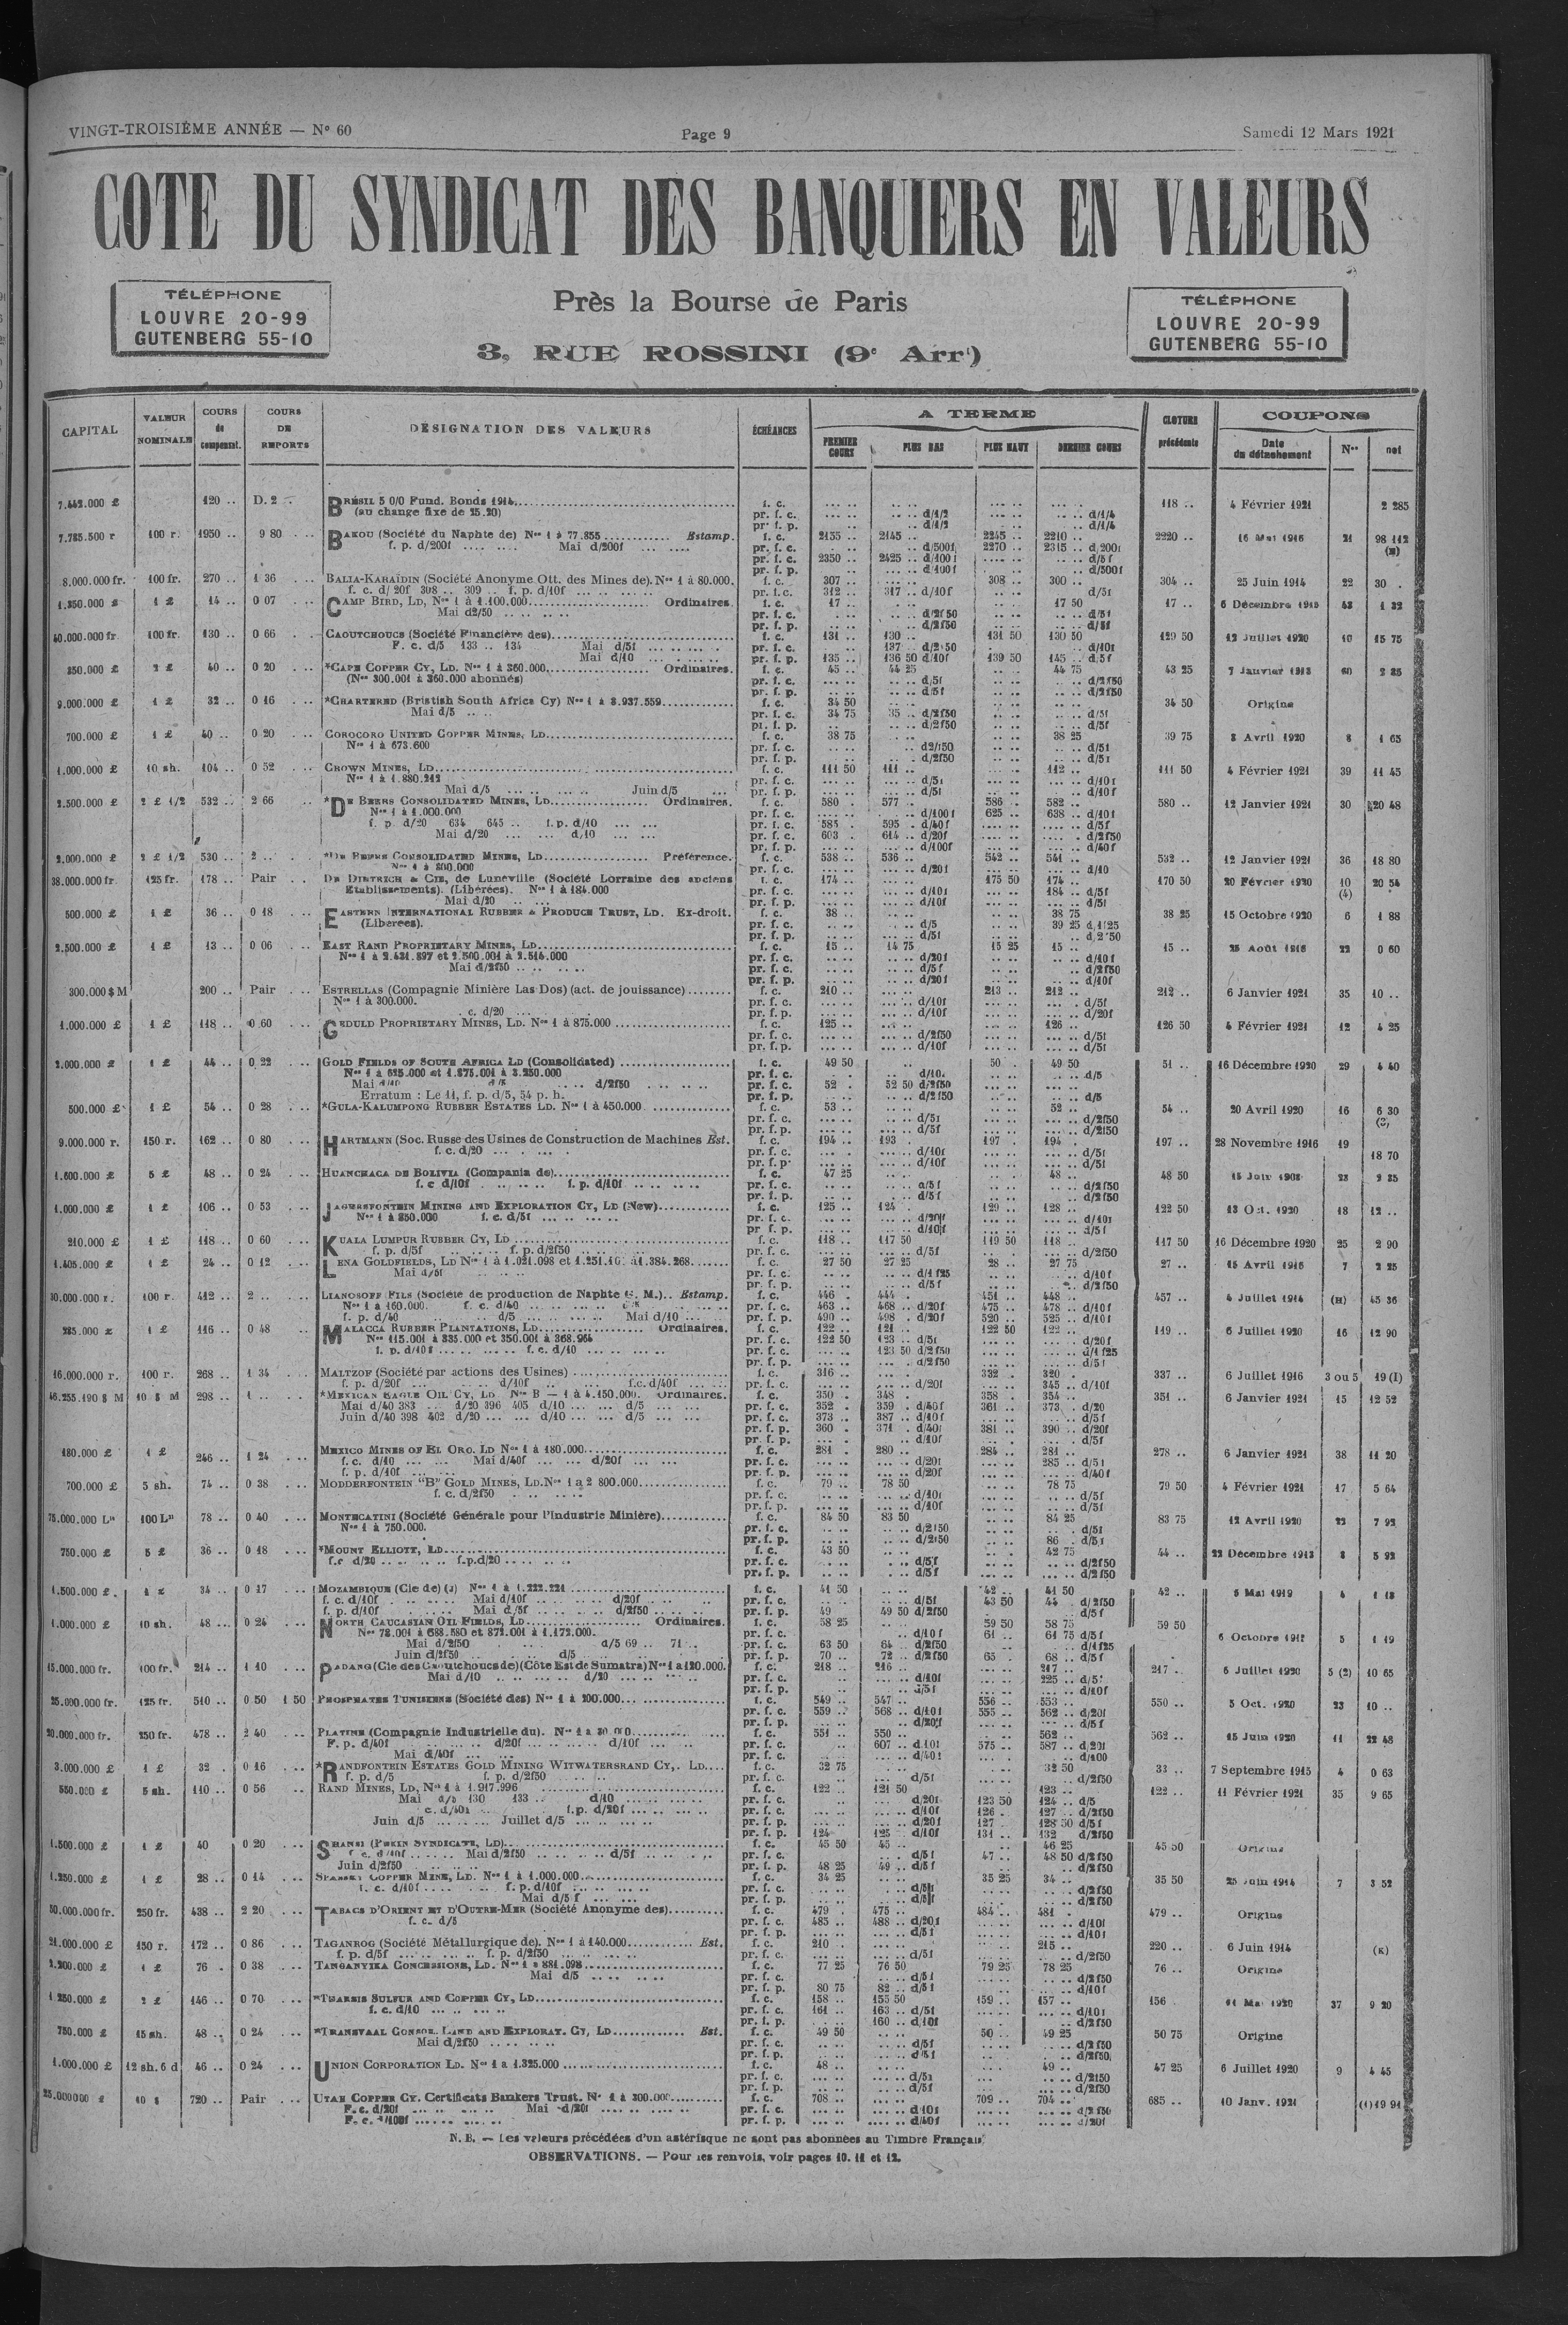 VINGT-TROISIÈME ANNÉE — N° 60 Page 9 Samedi 12 Mars 1921
COTE DU SYNDICAT DES BANQUIERS EN VALEURS
TÉLÉPHONE
LOUVRE 20-99
GUTENBERG 55-10
Près la Bourse de Paris
3, RUE ROSSINI (9e Arrt)
TÉLÉPHONE
LOUVRE 20-99
GUTENBERG 55-10
CAPITAL VALEUR NOMINALE COURS de compensat. COURS DE REPORTS DÉSIGNATION DES VALEURS ÉCHÉANCES A TERME CLOTURE précédente COUPONS
PREMIER COURS PLUS BAS PLUS HAUT DERNIER COURS Date du détachement Nos net
7.442.000 £ 120 .. D. 2 .. BRÉSIL 5 0/0 Fund. Bonds 1914 f. c. 118 .. 4 Février 1921 2 285
(au change fixe de 25.20) pr. f. c.
7.785.500 r 100 r. 1950 .. 9 80 BAKOU (Société du Naphte de) Nos 1 à 77.855 Estamp. f. c. 2155 .. 2145 .. 2245 .. 2210 .. 2220 .. 16 Mai 1916 21 98 112
f. p. d/200f Mai d/200f pr. f. c. d/500f 2270 .. 2315 .. d/200f
8.000.000 fr. 100 fr. 270 .. 1 36 BALIA-KARAÏDIN (Société Anonyme Ott. des Mines de). Nos 1 à 80.000. f. c. 307 .. 308 .. 300 .. 304 .. 25 Juin 1914 22 30 .
f. c. d/20f 308 .. 309 .. f. p. d/10f pr. f. c. 312 .. 317 .. d/10f d/5f
1.350.000 £ 1 £ 14 .. 0 07 CAMP BIRD, LD, Nos 1 à 1.100.000 Ordinaires. f. c. 17 .. 17 50 17 .. 6 Décembre
Mai d2/50 pr. f. c. d/2f50 d/5f
40.000.000 fr 100 fr. 130 .. 0 66 CAOUTCHOUCS (Société Financière des) f. c. 131 .. 130 .. 131 50 130 50 129 50 12 Juillet 1920 10 15 75
F. c. d/5 133 .. 134 Mai d/5f pr. f. c. 137 .. d/2f50 d/10f
Mai d/10 pr. f. p. 135 .. 136 50 d/10f 139 50 145 .. d/5f
350.000 £ 2 £ 40 .. 0 20 *CAPE COPPER CY, LD. Nos 1 à 360.000 Ordinaires. f. c. 45 .. 44 25 44 75 43 25 7 Janvier
(Nos 300.001 à 360.000 abonnés) pr. f. c. d/5f d/2f50
9.000.000 £ 1 £ 32 .. 0 16 *CHARTERED (Bristish South Africa Cy) Nos 1 à 8.937.559 f. c. 34 50 34 50 Origine
Mai d/5 pr. f. c. 34 75 35 .. d/2f50 d/5f
700.000 £ 1 £ 40 .. 0 20 COROCORO UNITED COPPER MINES, LD f. c. 38 75 38 25 39 75 8 Avril 1920 8 1 65
Nos 1 à 673.600 pr. f. c. d/5f
1.000.000 £ 10 sh. 104 .. 0 52 CROWN MINES, LD f. c. 111 50 111 .. 112 .. 111 50 4 Février 1921 39 11 45
Nos 1 à 1.880.212 pr. f. c. d/5f d/10f
Mai d/5 Juin d/5
2.500.000 £ 2 £ 1/2 532 .. 2 66 *DE BEERS CONSOLIDATED MINES, LD Ordinaires. f. c. 580 . 577 .. 586 .. 582 .. 580 .. 12 Janvier 1921 30 20 48
Nos 1 à 1.000.000 pr. f. c. d/100f 625 .. 638 .. d/10f
f. p. d/20 634 645 .. f. p. d/10 pr. f. c. 585 . 595 . d/40f d/5f
Mai d/20 d/10 pr. f. c. 603 . 614 .. d/20f d/2f50
pr. f. p. d/100f d/40f
2.000.000 £ 2 £ 1/2 530 .. 2 .. *DE BEERS CONSOLIDATED MINES, LD Préférence. f. c. 538 .. 536 .. 542 .. 541 .. 532 .. 12 Janvier 1921 36 18 80
Nos 1 à 800.000 pr. f. c. d/20f d/10
38.000.000 fr. 125 fr. 178 .. Pair DE DIETRICH & CIE, de Lunéville (Société Lorraine des anciens f. c. 174 .. 175 50 174 .. 170 50 20 Février 1920 10 20 54
Etablissements). (Libérées). Nos 1 à 184.000 pr. f. c. d/10f 184 .. d/5f (4)
Mai d/20 pr. f. p. d/10f d/5f
500.000 £ 1 £ 36 .. 0 18 EASTERN INTERNATIONAL RUBBER & PRODUCE TRUST, LD. Ex-droit. f. c. 38 .. 38 75 38 25 15 Octobre 1920 6 1 88
(Libérées). pr. f. c. d/5 39 25 d/1f25
2.500.000 £ 1 £ 13 .. 0 06 EAST RAND PROPRIETARY MINES, LD f. c. 15 .. 14 75 15 25 15 .. 15 .. 25 Août 1916 22 0 60
Nos 1 à 2.431.897 et 2.500.001 à 2.514.000 pr. f. c. d/20f d/10f
Mai d/2f50 pr. f. c. d/5f d/2f50
300.000 $ M 200 .. Pair ESTRELLAS (Compagnie Minière Las Dos) (act. de jouissance) f. c. 210 .. 213 .. 212 .. 212 .. 6 Janvier 1921 35 10 ..
Nos 1 à 300.000. pr. f. c. d/10f d/5f
c. d/20 pr. f. p. d/10f d/20f
1.000.000 £ 1 £ 118 .. 0 60 GEDULD PROPRIETARY MINES, LD. Nos 1 à 875.000 f. c. 125 .. 126 .. 126 50 4 Février 1921 12 4 25
pr. f. c. d/2f50 d/5f
pr. f. p. d/10f d/5f
2.000.000 £ 1 £ 44 .. 0 22 GOLD FIELDS OF SOUTH AFRICA LD (Consolidated) f. c. 49 50 50 . 49 50 51 .. 16 Décembre 1920 29 4 40
Nos 1 à 625.000 et 1.875.001 à 3.250.000 pr. f. c. d/10. d/5
Mai d/10 d/5 d/2f50 pr. f. c. 52 . 52 50 d/2f50
Erratum : Le 11, f. p. d/5, 54 p. h. pr. f. p. d/2f50 d/5
500.000 £ 1 £ 54 .. 0 28 *GULA-KALUMPONG RUBBER ESTATES LD. Nos 1 à 450.000 f. c. 53 .. 52 .. 54 .. 20 Avril 1920 16 6 30
9.000.000 r. 150 r. 162 .. 0 80 HARTMANN (Soc. Russe des Usines de Construction de Machines Est. f. c. 194 .. 193 . 197 . 194 . 197 .. 28 Novembre 1916 19 18 70
f. c. d/20 pr. f. c. d/10f d/5f
1.600.000 £ 5 £ 48 .. 0 24 HUANCHACA DE BOLIVIA (Compania de) f. c. 47 25 48 .. 48 50 23 2 85
f. c d/10f f. p. d/10f pr. f. c. d/5f d/2f50
1.000.000 £ 1 £ 106 .. 0 53 JAGERSFONTEIN MINING AND EXPLORATION CY, LD (New) f. c. 125 .. 124 . 129 .. 128 .. 122 50 13 Oct. 1920 18 12 ..
Nos 1 à 850.000 f. c. d/5f
210.000 £ 1 £ 118 .. 0 60 KUALA LUMPUR RUBBER CY, LD f. c. 118 .. 117 50 119 50 118 .. 117 50 16 Décembre 1920 25 2 90
f. p. d/5f f. p. d/2f50 pr. f. c. d/5f d/2f50
1.405.000 £ 1 £ 24 .. 0 12 LENA GOLDFIELDS, LD Nos 1 à 1.021.098 et 1.251.10. à 1.384.268 f. c. 27 50 27 25 28 .. 27 75 27 .. 15 Avril 1916 7 2 25
Mai d/5f pr. f. c. d/1f25 d/10f
30.000.000 r. 100 r. 412 .. 2 .. LIANOSOFF FILS (Société de production de Naphte G. M.) Estamp. f. c. 446 . 444 . 451 .. 448 .. 457 .. 4 Juillet 1914 (H) 45 36
Nos 1 à 160.000. f. c. d/40 pr. f. c. 463 .. 468 .. d/20f 475 .. 478 .. d/10f
f. p. d/40 d/5 Mai d/10 pr. f. p. 490 .. 498 . d/20f 520 .. 525 .. d/10f
285.000 £ 1 £ 116 .. 0 48 MALACCA RUBBER PLANTATIONS, LD Ordinaires. f. c. 122 .. 121 .. 122 50 122 .. 119 .. 6 Juillet 1920 16 12 90
Nos 115.001 à 335.000 et 350.001 à 368.964 pr. f. c. 122 50 123 .. d/5f d/20f
f. p. d/10f f. c. d/10 pr. f. c. 123 50 d/2f50 d/1f25
16.000.000 r. 100 r. 268 .. 1 34 MALTZOF (Société par actions des Usines) f. c. 316 .. 332 . 320 . 337 .. 6 Juillet 1916 3 ou 5 19 (I)
f. p. d/20f d/10f f.c. d/40f pr. f. c. d/20f 345 .. d/10f
46.255.190 $ M 10 $ M 298 .. 1 .. *MEXICAN EAGLE OIL CY, LD Nos B — 1 à 4.150.000. Ordinaires. f. c. 350 . 348 . 358 . 354 .. 351 .. 6 Janvier 1921 15 12 52
Mai d/40 383 d/20 396 405 d/10 d/5 pr. f. c. 352 . 359 . d/40f 361 .. 373 . d/20
Juin d/40 398 402 d/20 d/10 d/5 pr. f. c. 373 .. 387 .. d/10f d/5f
pr. f. p. 360 . 371 . d/40f 381 .. 390 .. d/20f
180.000 £ 1 £ 246 .. 1 24 MEXICO MINES OF EL ORO. LD Nos 1 à 180.000 f. c. 281 . 280 .. 284 .. 281 .. 278 .. 6 Janvier 1921 38 11 20
f. c. d/10 Mai d/40f d/20f pr. f. c. d/20f 285 .. d/5f
f. p. d/10f pr. f. p. d/20f d/40f
700.000 £ 5 sh. 74 .. 0 38 MODDERFONTEIN "B" GOLD MINES, LD. Nos 1 à 2 800.000 f. c. 79 .. 78 50 78 75 79 50 4 Février 1921 17 5 64
f. c. d/2f50 pr. f. c. d/10f d/5f
75.000.000 Lis 100 Lis 78 .. 0 40 MONTECATINI (Société Générale pour l'Industrie Minière) f. c. 84 50 83 50 84 25 83 75 12 Avril 1920 22 7 92
Nos 1 à 750.000. pr. f. c. d/2f50 d/5f
750.000 £ 5 £ 36 .. 0 18 *MOUNT ELLIOTT, LD f. c. 43 50 42 75 44 .. 22 Décembre 1913 8 5 92
f.c d/20 f.p.d/20 pr. f. c. d/5f d/2f50
1.500.000 £ 1 £ 34 .. 0 17 MOZAMBIQUE (Cie de) (J) Nos 1 à 1.222.221 f. c. 41 50 42 .. 41 50 42 .. 5 Mai 1919 4 1 18
f. c. d/10f Mai d/10f d/20f pr. f. c. d/5f 43 50 44 . d/2f50
f. p. d/10f Mai d/5f d/2f50 pr. f. p. 49 49 50 d/2f50 d/5f
1.000.000 £ 10 sh. 48 .. 0 24 NORTH CAUCASIAN OIL FIELDS, LD Ordinaires. f. c. 58 25 59 50 58 75 59 50 6 Octobre 5 1 19
Nos 78.001 à 688.580 et 872.001 à 1.172.000. pr. f. c. d/10f 61 .. 61 75 d/5f
Mai d/2f50 d/5 69 .. 71 .. pr. f. c. 63 50 64 .. d/2f50 d/1f25
Juin d/2f50 d/5 pr. f. p. 70 .. 72 .. d/2f50 65 . 68 .. d/5f
15.000.000 fr. 100 fr. 214 .. 1 10 PADANG (Cie des Caoutchoucs de) (Côte Est de Sumatra) Nos 1 à 120.000. f. c. 218 .. 216 .. 217 .. 217 .. 6 Juillet 1920 5 (2) 10 65
Mai d/10 d/20 pr. f. c. d/10f 225 .. d/5f
25.000.000 fr. 125 fr. 510 .. 0 50 1 50 PHOSPHATES TUNISIENS (Société des) Nos 1 à 200.000 f. c. 549 .. 547 .. 556 .. 553 .. 550 .. 5 Oct. 1920 23 10 ..
pr. f. c. 559 .. 568 .. d/10f 555 .. 562 .. d/20f
20.000.000 fr. 250 fr. 478 .. 2 40 PLATINE (Compagnie Industrielle du). Nos 1 à 80.000 f. c. 551 .. 550 .. 562 .. 562 .. 15 Juin 1920 11 22 48
F. p. d/40f d/20f d/10f pr. f. c. 607 .. d/10f 575 .. 587 .. d/20f
Mai d/40f
3.000.000 £ 1 £ 32 . 0 16 *RANDFONTEIN ESTATES GOLD MINING WITWATERSRAND CY,. LD f. c. 32 75 32 50 33 .. 7 Septembre 1915 4 0 63
f. p. d/5 f. p. d/2f50 pr. f. c. d/5f d/2f50
550.000 £ 5 sh. 110 .. 0 56 RAND MINES, LD, Nos 1 à 1.917.996 f. c. 122 .. 121 50 123 .. 122 .. 11 Février 1921 35 9 65
Mai d/5 130 133 .. d/10 pr. f. c. d/20f 123 50 124 .. d/5
c. d/40f f.p. d/20f pr. f. c. d/10f 126 . 127 .. d/2f50
Juin d/5 Juillet d/5 pr. f. p. d/20f 127 . 128 50 d/5f
pr. f. p. 124 125 d/10f 131 .. 132 d/2f50
1.500.000 £ 1 £ 40 0 20 SHANSI (PEKIN SYNDICATE, LD) f. c. 45 50 45 .. 46 25 45 50 Origine
f. c. d/10f Mai d/2f50 d/5f pr. f. c. d/5f 47 .. 48 50 d/2f50
Juin d/2f50 pr. f. p. 48 25 49 .. d/5f d/2f50
1.250.000 £ 1 £ 28 .. 0 14 SPASSKY COPPER MINE, LD. Nos 1 à 1.000.000 f. c. 34 25 35 25 34 .. 35 50 25 Juin 1914 7 3 52
f. c. d/10f f. p. d/10f
Mai d/5f
50.000.000 fr. 250 fr. 438 .. 2 20 TABACS D'ORIENT ET D'OUTRE-MER (Société Anonyme des) f. c. 479 . 475 .. 484 .. 481 . 479 .. Origine
f. c. d/5 pr. f. c. 485 .. 488 .. d/20f d/10f
21.000.000 £ 150 r. 172 .. 0 86 TAGANROG (Société Métallurgique de). Nos 1 à 140.000 Est. f. c. 210 . 215 .. 220 .. 6 Juin 1914 (K)
f. p. d/5f f. p. d/2f50 pr. f. c. d/5f d/2f50
1 £ 76 . 0 38 TANGANYIKA CONCESSIONS, LD. Nos 1 à 881.098 f. c. 77 25 76 50 79 25 78 25 76 .. Origine
Mai d/5 pr. f. c. d/5f d/2f50
pr. f. p. 80 75 82 .. d/5f d/10f
1 250.000 £ 2 £ 146 .. 0 70 *THARSIS SULFUR AND COPPER CY, LD f. c. 158 .. 155 50 159 .. 157 .. 156 11 Mai 1920 37 9 20
f. c. d/10 pr. f. c. 161 .. 163 .. d/5f d/10f
pr. f. p. 160 .. d/10f d/2f50
750.000 £ 15 sh. 48 .. 0 24 *TRANSVAAL CONSOL. LAND AND EXPLORAT. CY, LD Est. f. c. 49 50 50 .. 49 25 50 75 Origine
Mai d/2f50 pr. f. c. d/5f d/2f50
1.000.000 £ 12 sh. 6 d 46 .. 0 24 UNION CORPORATION LD. Nos 1 à 1.325.000 f. c. 48 .. 49 .. 47 25 6 Juillet 1920 9 4 45
pr. f. c. d/5f d/2f50
pr. f. p. d/5f d/2f50
25.000000 $ 10 $ 720 .. Pair UTAH COPPER CY. Certificats Bankers Trust. Nos 1 à 300.000 f. c. 708 .. 709 .. 704 .. 685 .. 10 Janv. 1921 19 91
F. c. d/20f Mai d/20f pr. f. c. d/10f d/2f50
F. c. d/100f pr. f. p. d/40f d/20f
N. B. — Les valeurs précédées d'un astérisque ne sont pas abonnées au Timbre Français.
OBSERVATIONS. — Pour les renvois, voir pages 10, 11 et 12.